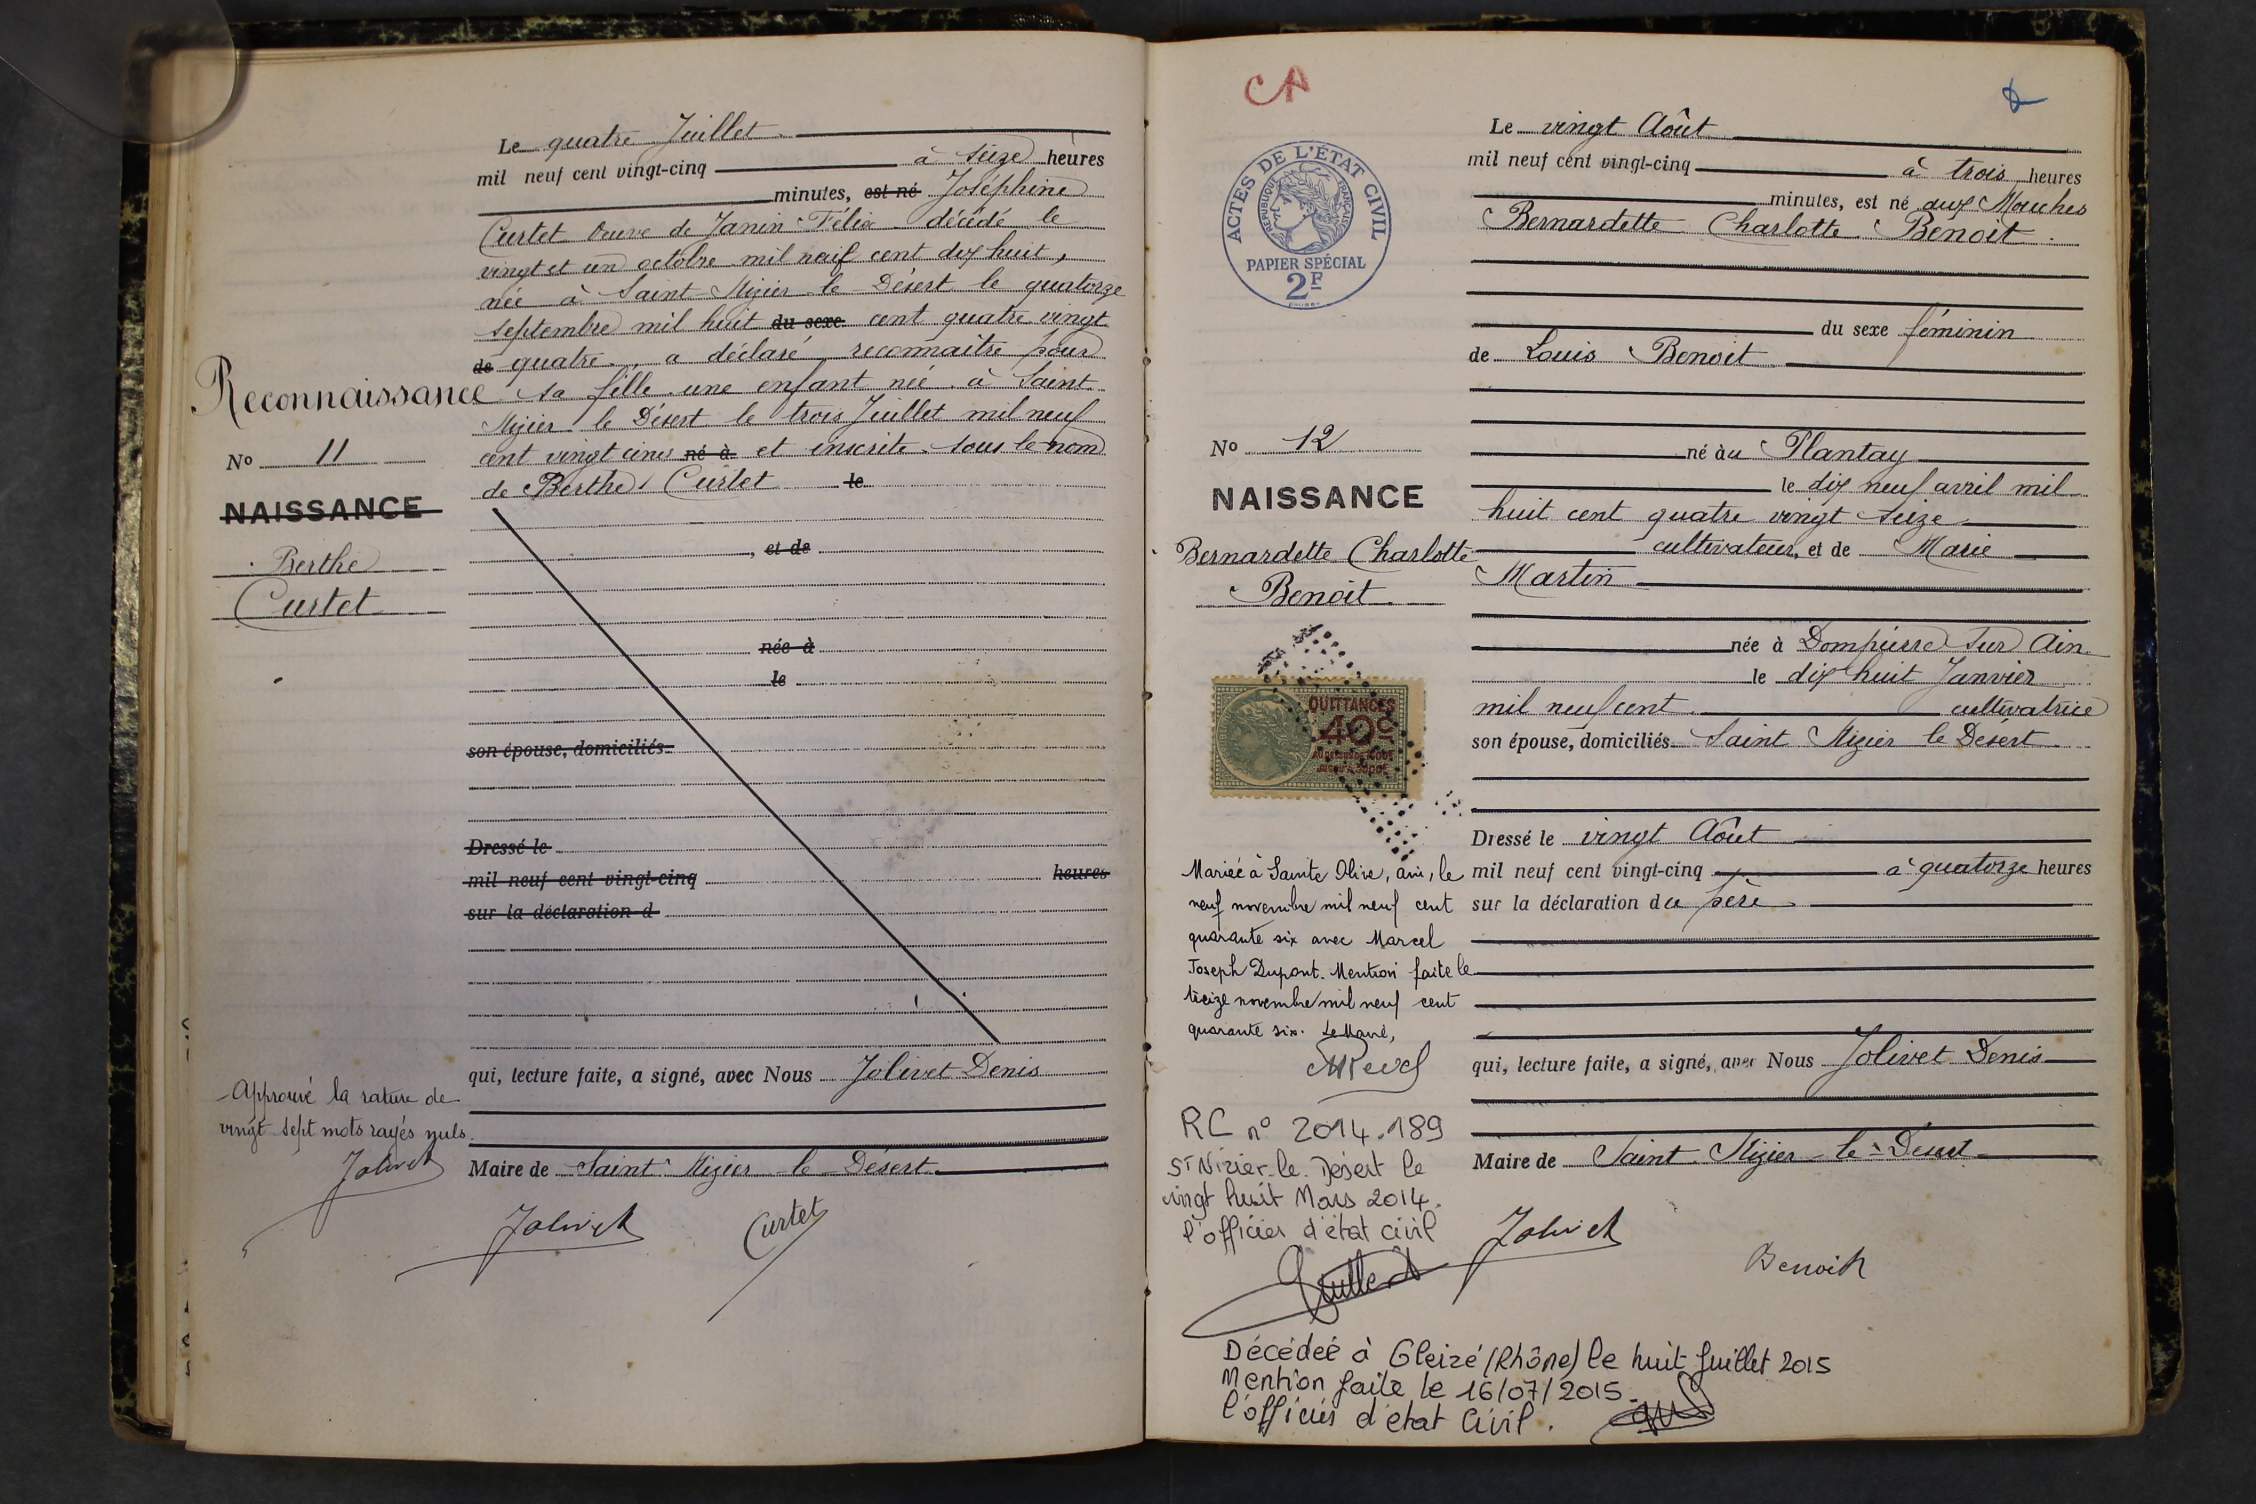 Le quatre Juillet
mil neuf cent vingt-cinq à seize heures
minutes, est né Joséphine
Curtet veuve de Janin Félix décédé le
vingt et un octobre mil neuf cent dix huit,
née à Saint Nizier le Désert le quatorze
septembre mil huit du sexe cent quatre vingt
de quatre, a déclaré reconnaitre pour
Reconnaissance sa fille une enfant née à Saint
Nizier le Désert le trois Juillet mil neuf
cent vingt cinq né à et inscrite sous le nom
de Berthe Curtet le
No 11
NAISSANCE
Berthe
Curtet
, et de
née à
le
son épouse, domiciliés
Dressé le
mil neuf cent vingt-cinq heures
sur la déclaration d
qui, lecture faite, a signé, avec Nous Jolivet Denis
Approuvé la rature de
vingt sept mots rayés nuls.
Jolivet
Maire de Saint Nizier le Désert
Jolivet Curtet
CA
ACTES DE L'ÉTAT CIVIL
RÉPUBLIQUE FRANÇAISE
PAPIER SPÉCIAL
2F
Le vingt Août
mil neuf cent vingt-cinq à trois heures
minutes, est né aux Mouches
Bernardette Charlotte Benoit
du sexe féminin
de Louis Benoit
né au Plantay
le dix neuf avril mil
huit cent quatre vingt seize
cultivateur, et de Marie
Martin
née à Dompierre sur Ain
le dix huit Janvier
mil neuf cent cultivatrice
son épouse, domiciliés Saint Nizier le Désert
Dressé le vingt Août
mil neuf cent vingt-cinq à quatorze heures
sur la déclaration du père
qui, lecture faite, a signé, avec Nous Jolivet Denis
Maire de Saint Nizier le Désert
Jolivet
Benoit
No 12
NAISSANCE
Bernardette Charlotte
Benoit
QUITTANCES
40c
Mariée à Sainte Olive, ain, le
neuf novembre mil neuf cent
quarante six avec Marcel
Joseph Dupont. Mention faite le
treize novembre mil neuf cent
quarante six. Le Maire,
RC n° 2014.189
St Nizier-le-Désert le
vingt huit Mars 2014.
l'officier d'état civil
Décédée à Gleizé (Rhône) le huit juillet 2015
Mention faite le 16/07/2015.
l'officier d'état Civil.